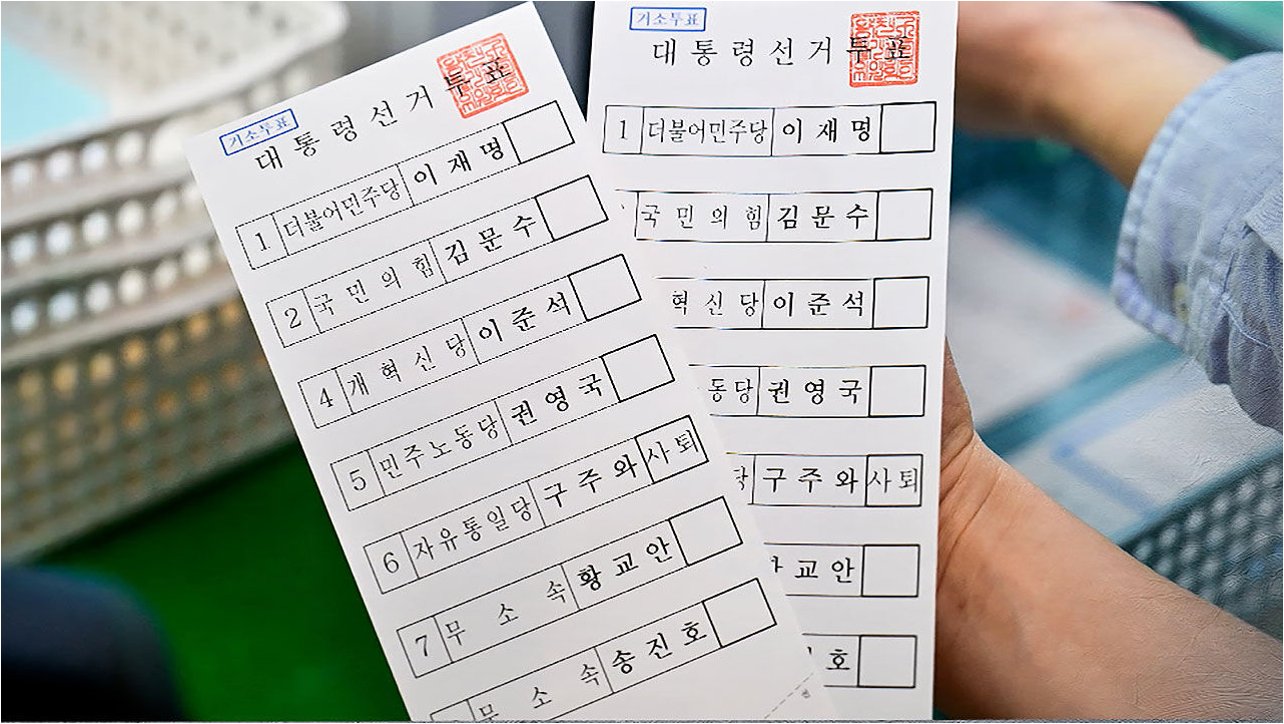 거소투표
대통령선거투표
1 더불어민주당 이재명
2 국민의힘 김문수
4 개혁신당 이준석
5 민주노동당 권영국
6 자유통일당 구주와 사퇴
7 무소속 황교안
무소속 송진호
거소투표
대통령선거투표
1 더불어민주당 이재명
국민의힘 김문수
혁신당 이준석
동당 권영국
당 구주와 사퇴
교안
호